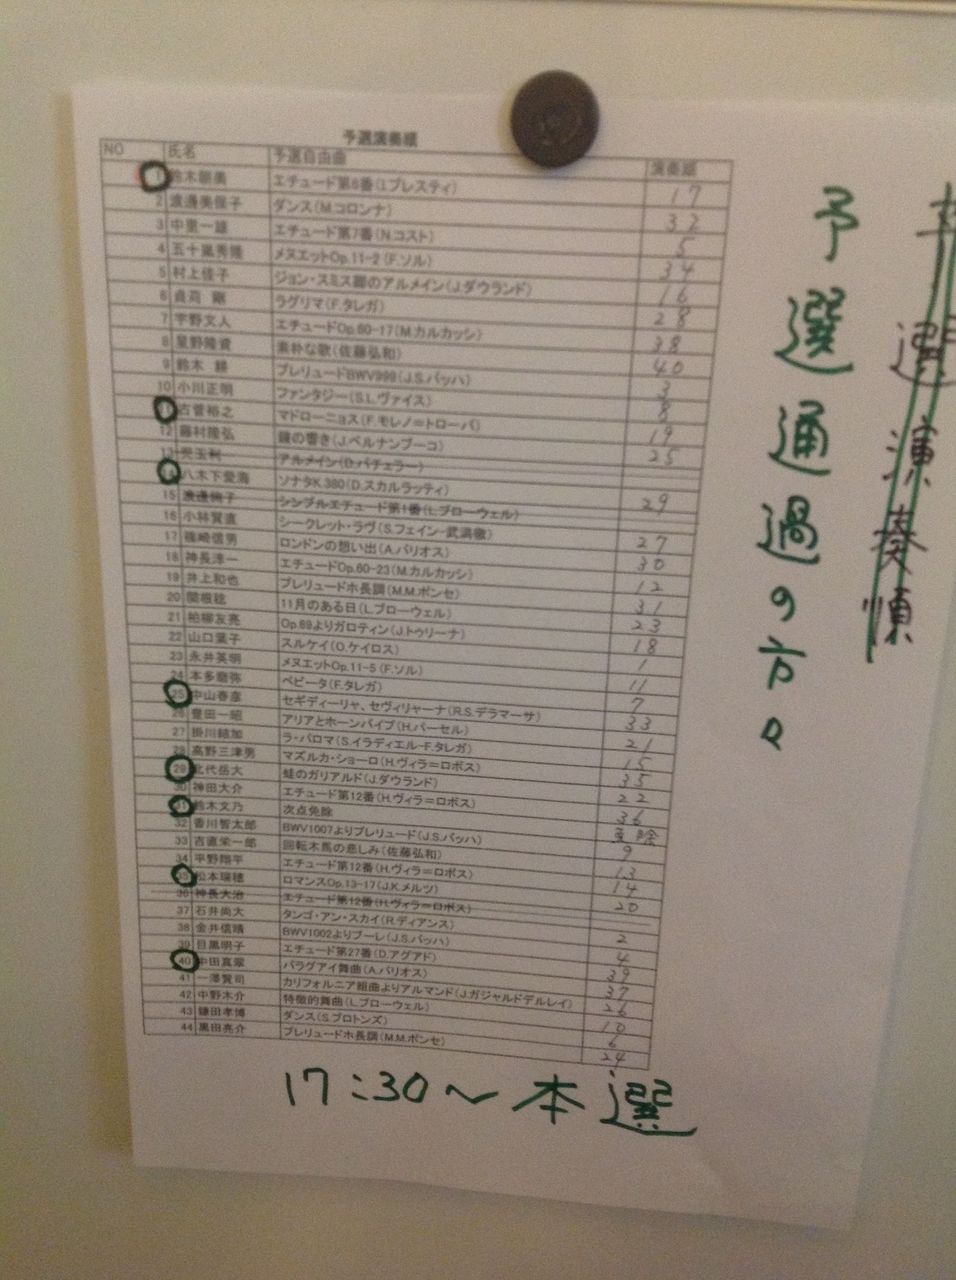 予選演奏順
NO 氏名 予選自由曲 演奏順
1 鈴木 美 エチュード第6番(I.プレスティ) 17
2 渡邊美保子 ダンス(M.コロンナ) 32
3 中里一雄 エチュード第7番(N.コスト) 5
4 五十嵐秀隆 メヌエットOp.11-2(F.ソル) 34
5 村上佳子 ジョン・スミス卿のアルメイン(J.ダウランド) 16
6 貞苅 剛 ラグリマ(F.タレガ) 28
7 宇野文人 エチュードOp.60-17(M.カルカッシ) 38
8 星野隆資 素朴な歌(佐藤弘和) 40
9 鈴木 耕 プレリュードBWV999(J.S.バッハ) 3
10 小川正明 ファンタジー(S.L.ヴァイス) 8
11 古曽裕之 マドローニョス(F.モレノ=トローバ) 19
12 藤村隆弘 鐘の響き(J.ペルナンブーコ) 25
13 児玉 アルメイン(D.バチェラー)
14 八木下愛海 ソナタK.380(D.スカルラッティ) 29
15 渡邊 子 シンプルエチュード第1番(L.ブローウェル)
16 小林賢直 シークレット・ラヴ(S.フェイン-武満徹) 27
17 篠崎信男 ロンドンの想い出(A.バリオス) 30
18 神長淳一 エチュードOp.60-23(M.カルカッシ) 12
19 井上和也 プレリュードホ長調(M.M.ポンセ) 31
20 関根稔 11月のある日(L.ブローウェル) 23
21 柏柳友亮 Op.69よりガロティン(J.トゥリーナ) 18
22 山口菓子 スルケイ(O.ケイロス) 1
23 永井英明 メヌエットOp.11-5(F.ソル) 11
24 本多磨弥 ペピータ(F.タレガ) 7
25 中山春彦 セギディーリャ、セヴィリャーナ(R.S.デラマーサ) 33
26 豊田一昭 アリアとホーンパイプ(H.パーセル) 21
27 掛川結加 ラ・パロマ(S.イラディエル-F.タレガ) 15
28 高野三津男 マズルカ・ショーロ(H.ヴィラ=ロボス) 35
29 北代岳大 蛙のガリアルド(J.ダウランド) 22
30 神田大介 エチュード第12番(H.ヴィラ=ロボス) 36
31 鈴木文乃 次点免除 免除
32 香川智太郎 BWV1007よりプレリュード(J.S.バッハ) 9
33 吉直栄一郎 回転木馬の悲しみ(佐藤弘和) 13
34 平野翔平 エチュード第12番(H.ヴィラ=ロボス) 14
35 松本瑞穂 ロマンスOp.13-17(J.K.メルツ) 20
36 神長大治 エチュード第12番(H.ヴィラ=ロボス)
37 石井尚大 タンゴ・アン・スカイ(R.ディアンス) 2
38 金井信晴 BWV1002よりブーレ(J.S.バッハ) 4
39 目黒明子 エチュード第27番(D.アグアド) 39
40 中田真翠 パラグアイ舞曲(A.バリオス) 37
41 一澤賢司 カリフォルニア組曲よりアルマンド(J.ガジャルドデルレイ) 26
42 中野木介 特徴的舞曲(L.ブローウェル) 10
43 鎌田孝博 ダンス(S.ブロトンズ) 6
44 黒田亮介 プレリュードホ長調(M.M.ポンセ) 24
17:30〜本選
予選演奏順
予選通過の方々